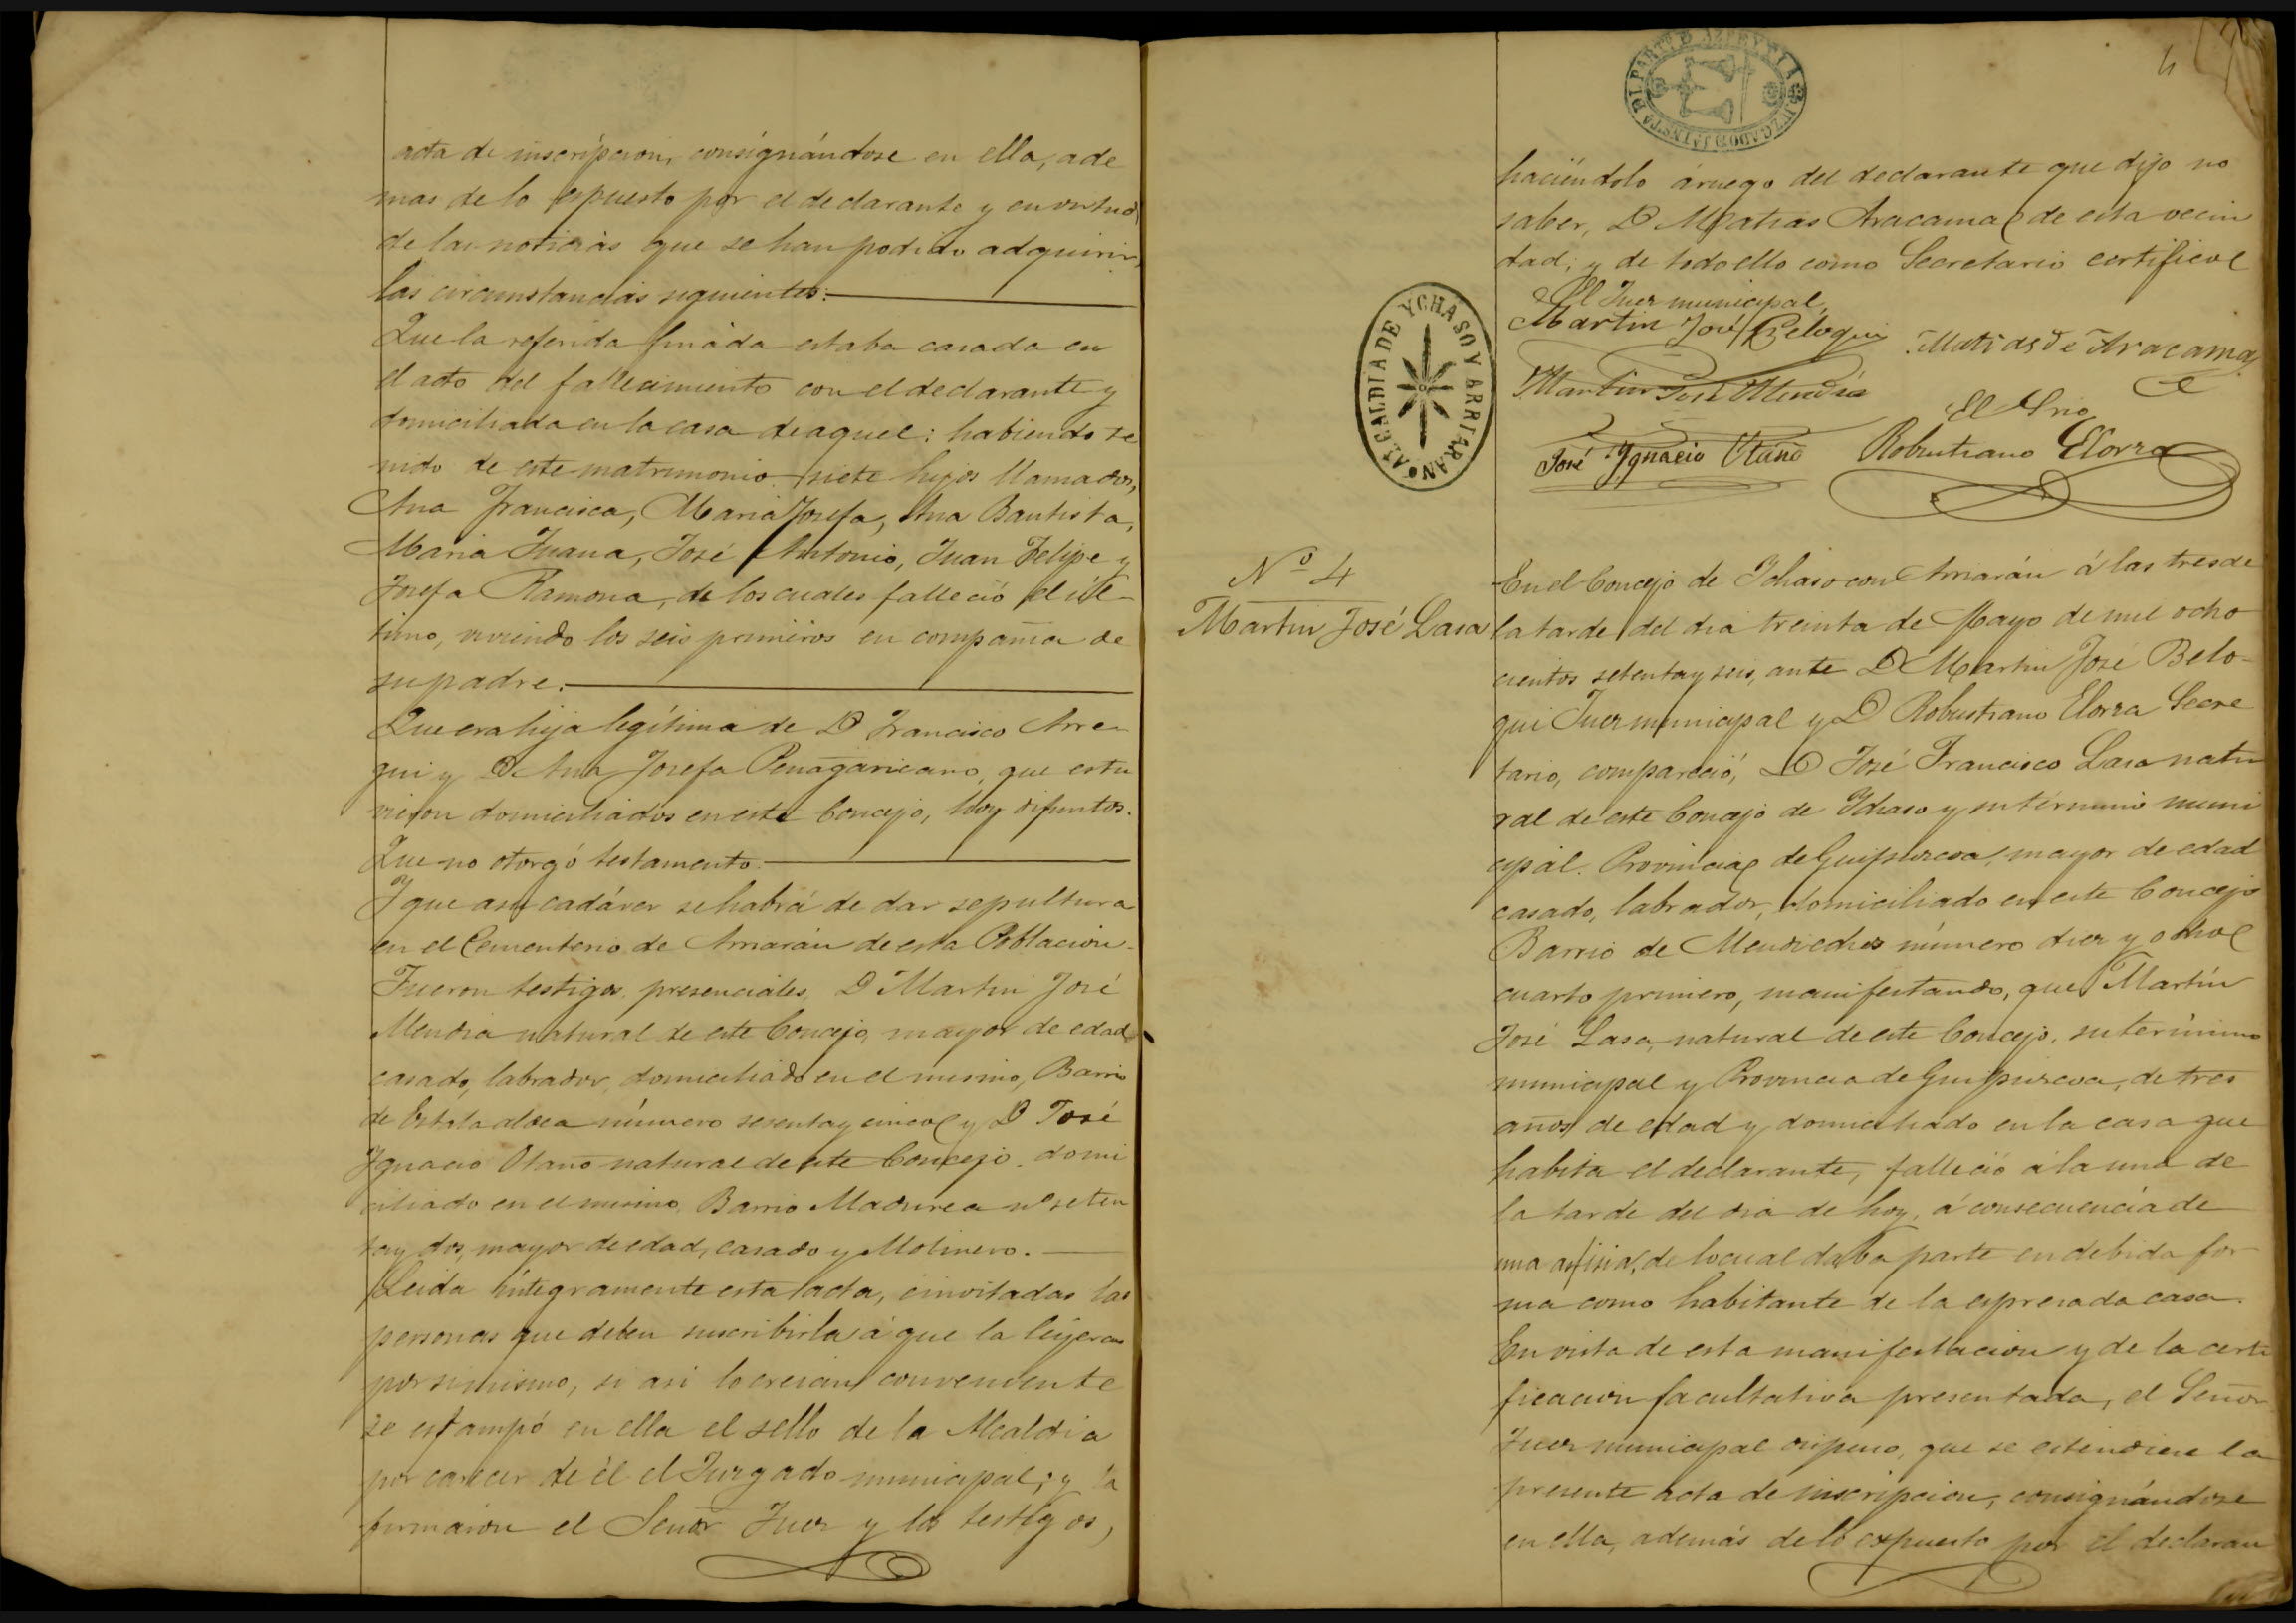 acta de inscripcion, consignándose en ella, ade
mas de lo espuesto por el declarante y en virtud
de las noticias que se han podido adquirir,
las circunstancias siguientes:
Que la referida finada estaba casada en
el acto del fallecimiento con el declarante y
domiciliada en la casa de aquel: habiendo te
nido de este matrimonio siete hijos llamados,
Ana Francisca, Maria Josefa, Ana Bautista,
Maria Juana, José Antonio, Juan Felipe y
Josefa Ramona, de los cuales falleció el úl-
timo, viviendo los seis primeros en compañia de
su padre.
Que era hija legítima de D Francisco Arre-
gui y D Ana Josefa Penagaricano, que estu
vieron domiciliados en este Concejo, hoy difuntos.
Que no otorgó testamento.
Y que a su cadáver se habrá de dar sepultura
en el Cementerio de Arriarán de esta Poblacion.
Fueron testigos presenciales, D Martin José
Mendia natural de este Concejo, mayor de edad
casado, labrador, domiciliado en el mismo, Barrio
de número sesenta y cinco y D José
Ygnacio Otaño natural de este Concejo domi
ciliado en el mismo, Barrio Madurea nº seten
ta y dos, mayor de edad, casado y Molinero.
Leida íntegramente esta acta, é invitadas las
personas que deben suscribirla á que la leyeran
por si mismo, si asi lo creian conveniente
se estampó en ella el sello de la Alcaldia
por carecer de él el Juzgado municipal; y la
firmaron el Señor Juez y los testigos,
4
JUZGADO DE 1ª INSTª DEL PARTº DE AZPEYTIA
haciéndolo á ruego del declarante que dijo no
saber, D Matias Aracama de esta vecin
dad; y de todo ello como Secretario certifico
El Juez municipal,
Martin José Beloqui
Matias de Aracama
Martin José Mendia
El Srio
José Ygnacio Otaño
Robustiano Elorza
ALCALDIA DE YCHASO Y ARRIARAN
Nº 4
Martin José Lasa
En el Concejo de Ichaso con Arriarán á las tres de
la tarde del dia treinta de Mayo de mil ocho
cientos setenta y seis, ante D Martin José Belo-
qui Juez municipal y D Robustiano Elorza Secre
tario, compareció, D José Francisco Lasa natu
ral de este Concejo de Ichaso y su término muni
cipal. Provincia de Guipuzcoa, mayor de edad
casado, labrador, domiciliado en este Concejo
Barrio de número diez y ocho
cuarto primero, manifestando, que Martín
José Lasa, natural de este Concejo, su término
municipal y Provincia de Guipuzcoa, de tres
años de edad y domiciliado en la casa que
habita el declarante, falleció á la una de
la tarde del dia de hoy, á consecuencia de
una asfisia, de lo cual daba parte en debida for
ma como habitante de la espresada casa.
En vista de esta manifestacion y de la certi
ficacion facultativa presentada, el Señor
Juez municipal dispuso, que se estendiese la
presente acta de inscripcion, consignándose
en ella, además de lo expuesto por el declaran